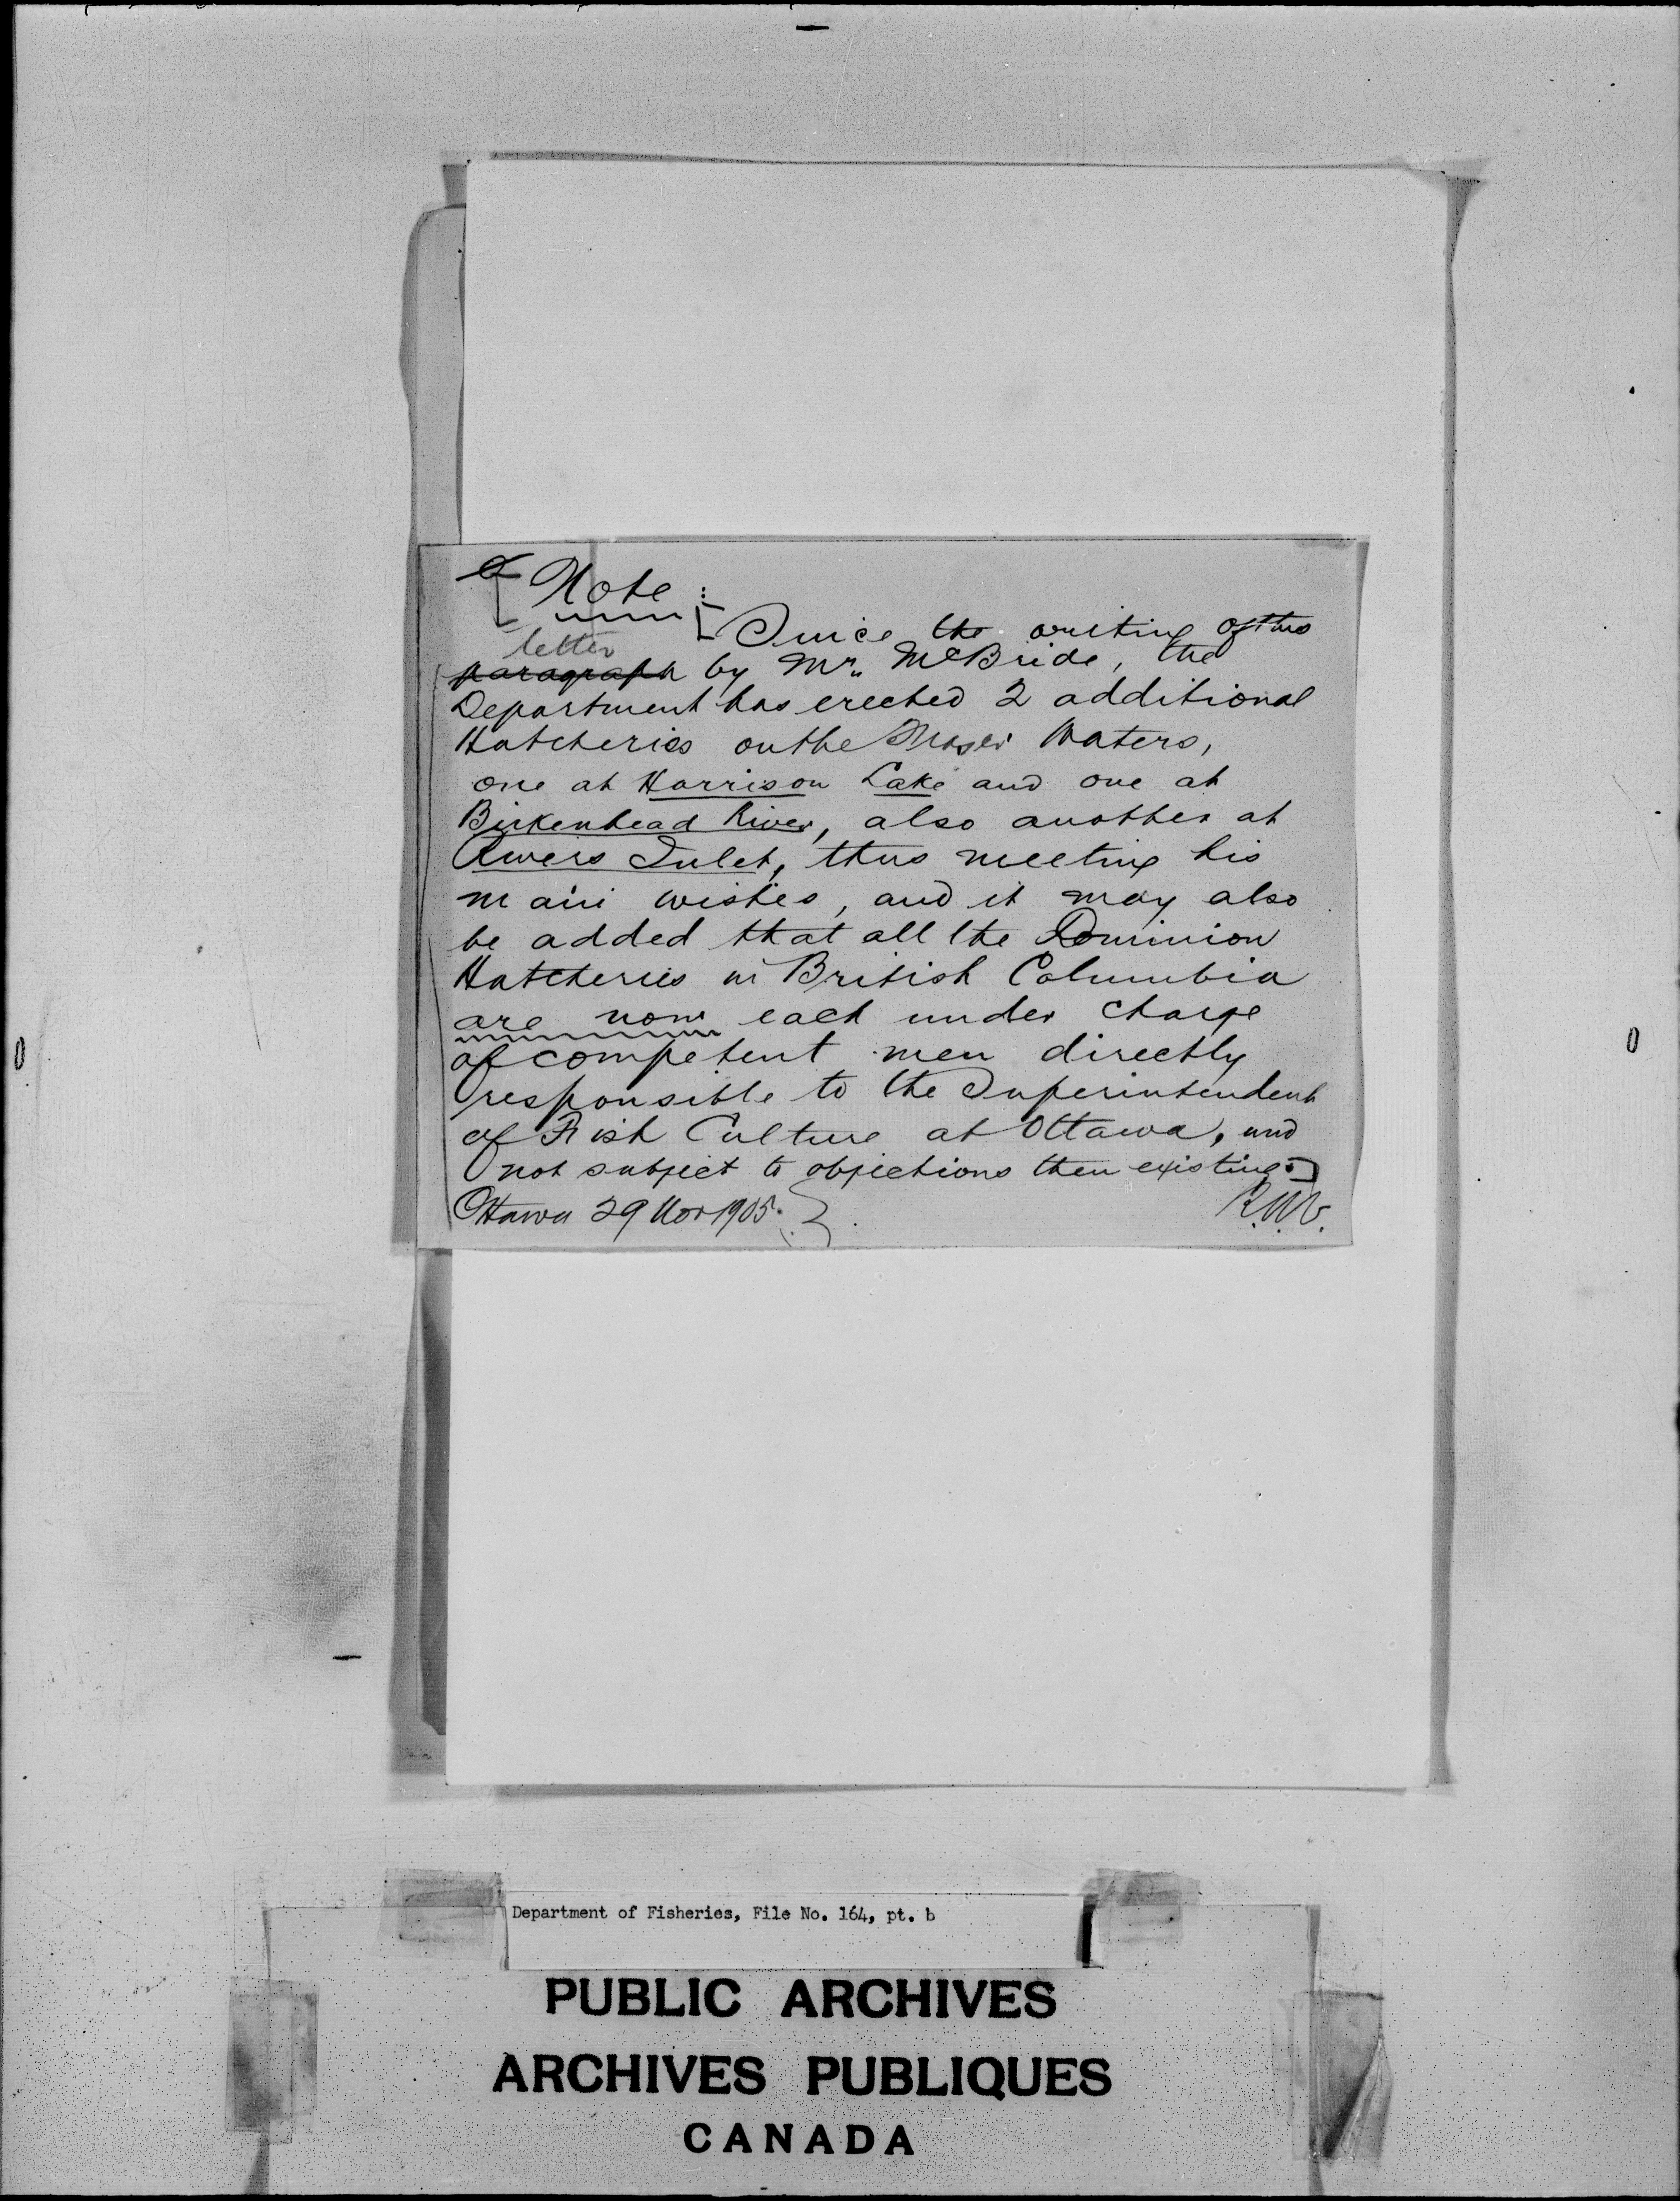 Note:
Since the writing of this
letter
paragraph by Mr. McBride, the
Department has erected 2 additional
Hatcheries on the Fraser Waters,
one at Harrison Lake and one at
Birkenhead River, also another at
Rivers Inlet, thus meeting his
main wishes, and it may also
be added that all the Dominion
Hatcheries in British Columbia
are now each under charge
of competent men directly
responsible to the Superintendent
of Fish Culture at Ottawa, and
not subject to objections then existing.]
Ottawa 29 Nov 1905.
Department of Fisheries, File No. 164, pt. b
PUBLIC ARCHIVES
ARCHIVES PUBLIQUES
CANADA